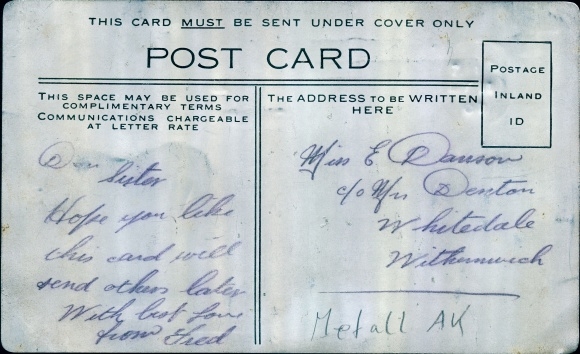 THIS CARD MUST BE SENT UNDER COVER ONLY
POST CARD
POSTAGE
INLAND
1D
THIS SPACE MAY BE USED FOR
COMPLIMENTARY TERMS
COMMUNICATIONS CHARGEABLE
AT LETTER RATE
THE ADDRESS TO BE WRITTEN
HERE
Dear
Sister
Hope you like
this card will
send others later
With best love
from Fred
Miss E Dawson
c/o Mrs Denton
Whitedale
Withernwick
Metall AK